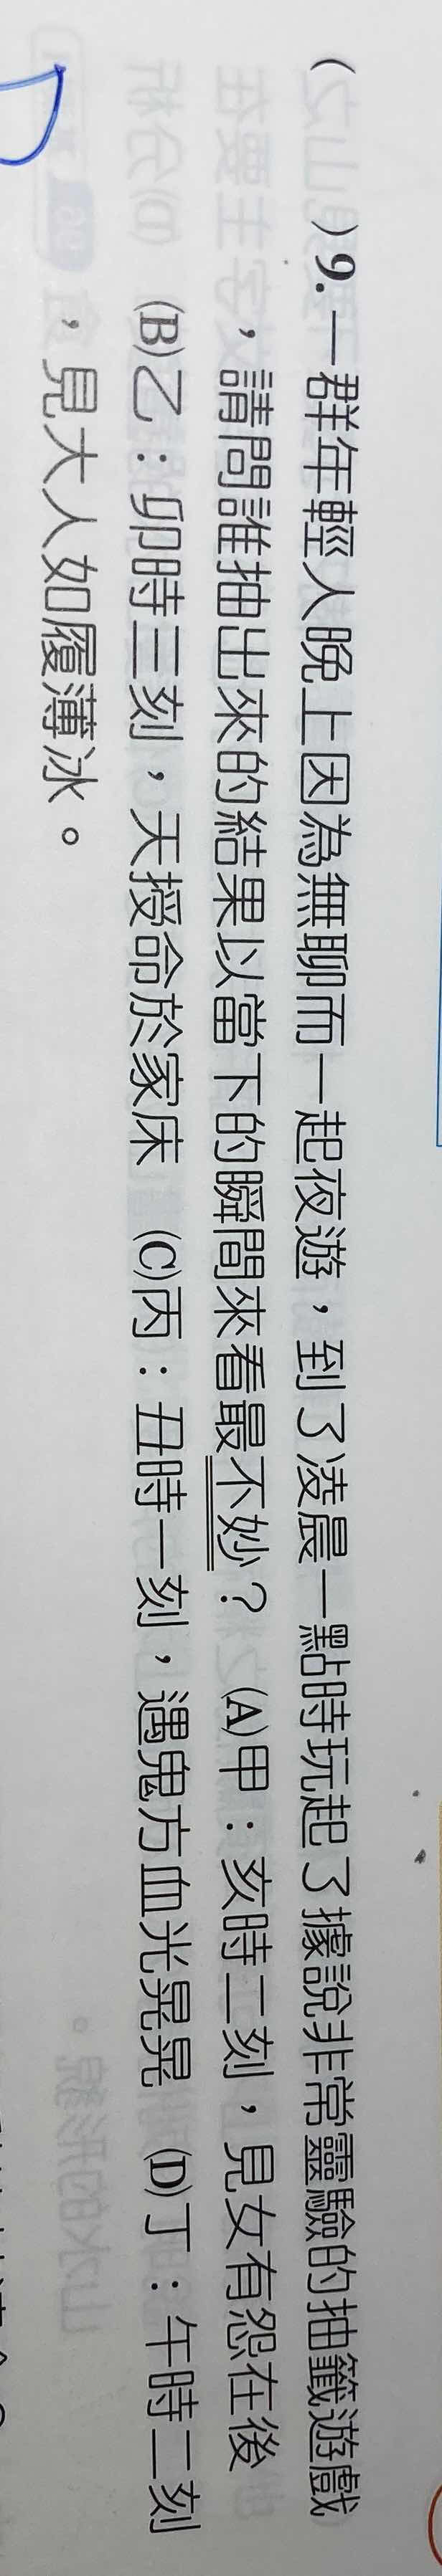 ( )9.一群年輕人晚上因為無聊而一起夜遊，到了凌晨一點時玩起了據說非常靈驗的抽籤遊戲
，請問誰抽出來的結果以當下的瞬間來看最不妙？ (A)甲：亥時二刻，見女有怨在後
(B)乙：卯時三刻，天授命於家床 (C)丙：丑時一刻，遇鬼方血光晃晃 (D)丁：午時二刻
，見大人如履薄冰。